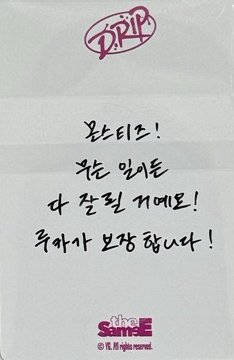 DRIP
몬스티즈!
무슨 일이든
다 잘 될 거예요!
루카가 보장합니다!
the
SameE
© YG. All rights reserved.